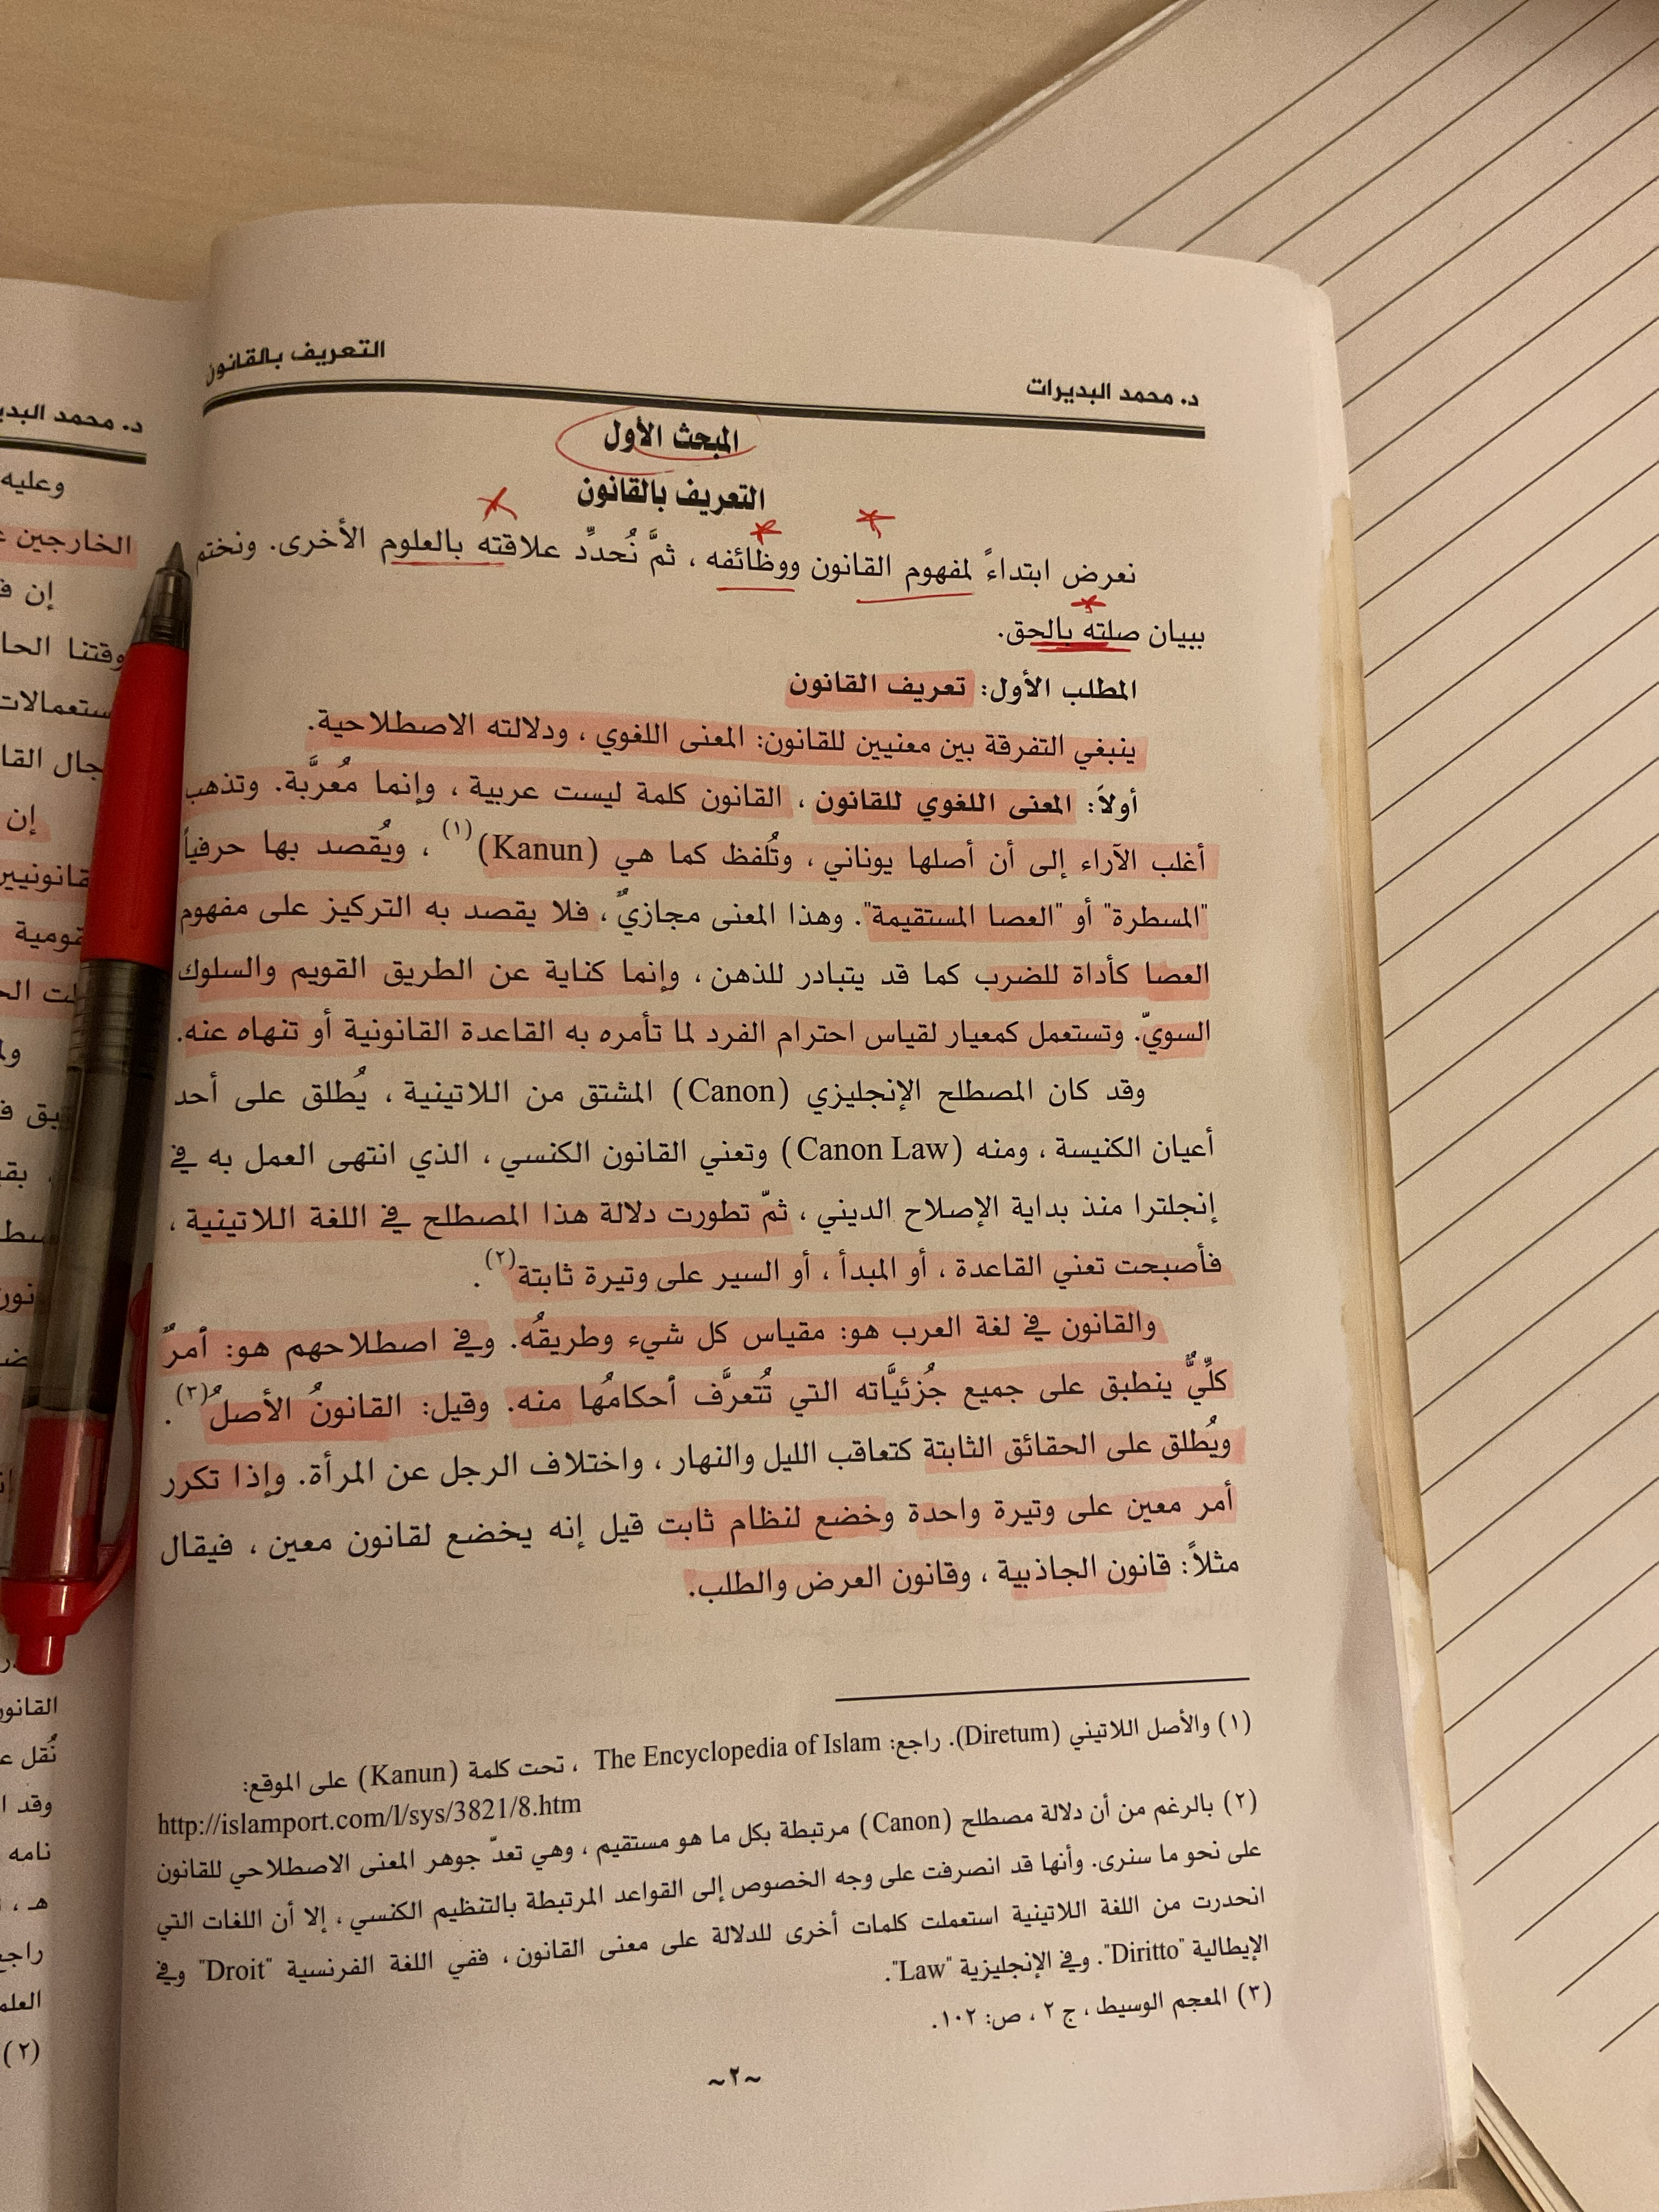 د. محمد البديرات
التعريف بالقانون
المبحث الأول
التعريف بالقانون
نعرض ابتداءً لمفهوم القانون ووظائفه ، ثمَّ نُحدِّد علاقته بالعلوم الأخرى. ونختم
ببيان صلته بالحق.
المطلب الأول: تعريف القانون
ينبغي التفرقة بين معنيين للقانون: المعنى اللغوي ، ودلالته الاصطلاحية.
أولاً: المعنى اللغوي للقانون ، القانون كلمة ليست عربية ، وإنما مُعرَّبة. وتذهب
أغلب الآراء إلى أن أصلها يوناني ، وتُلفظ كما هي (Kanun)(١) ، ويُقصد بها حرفياً
"المسطرة" أو "العصا المستقيمة". وهذا المعنى مجازيٌّ ، فلا يقصد به التركيز على مفهوم
العصا كأداة للضرب كما قد يتبادر للذهن ، وإنما كناية عن الطريق القويم والسلوك
السويّ. وتستعمل كمعيار لقياس احترام الفرد لما تأمره به القاعدة القانونية أو تنهاه عنه.
وقد كان المصطلح الإنجليزي (Canon) المشتق من اللاتينية ، يُطلق على أحد
أعيان الكنيسة ، ومنه (Canon Law) وتعني القانون الكنسي ، الذي انتهى العمل به في
إنجلترا منذ بداية الإصلاح الديني ، ثمّ تطورت دلالة هذا المصطلح في اللغة اللاتينية ،
فأصبحت تعني القاعدة ، أو المبدأ ، أو السير على وتيرة ثابتة(٢) .
والقانون في لغة العرب هو: مقياس كل شيء وطريقُه. وفي اصطلاحهم هو: أمرٌ
كلِّيٌّ ينطبق على جميع جُزئيَّاته التي تُتعرَّف أحكامُها منه. وقيل: القانونُ الأصلُ(٣).
ويُطلق على الحقائق الثابتة كتعاقب الليل والنهار ، واختلاف الرجل عن المرأة. وإذا تكرر
أمر معين على وتيرة واحدة وخضع لنظام ثابت قيل إنه يخضع لقانون معين ، فيقال
مثلاً: قانون الجاذبية ، وقانون العرض والطلب.
(١) والأصل اللاتيني (Diretum). راجع: The Encyclopedia of Islam ، تحت كلمة (Kanun) على الموقع:
http://islamport.com/l/sys/3821/8.htm
(٢) بالرغم من أن دلالة مصطلح (Canon) مرتبطة بكل ما هو مستقيم ، وهي تعدّ جوهر المعنى الاصطلاحي للقانون
على نحو ما سنرى. وأنها قد انصرفت على وجه الخصوص إلى القواعد المرتبطة بالتنظيم الكنسي ، إلا أن اللغات التي
انحدرت من اللغة اللاتينية استعملت كلمات أخرى للدلالة على معنى القانون ، ففي اللغة الفرنسية "Droit" وفي
الإيطالية "Diritto". وفي الإنجليزية "Law".
(٣) المعجم الوسيط ، ج ٢ ، ص: ١٠٢.
~٢~
د. محمد
وعليه
الخارجين